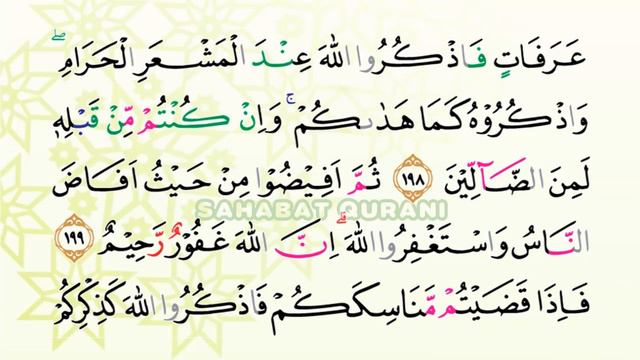 عَرَفَاتٍ فَاذْكُرُوا اللهَ عِنْدَ الْمَشْعَرِ الْحَرَامِ ۖ
وَاذْكُرُوْهُ كَمَا هَدٰىكُمْ ۚ وَاِنْ كُنْتُمْ مِّنْ قَبْلِهٖ
لَمِنَ الضَّاۤلِّيْنَ ١٩٨ ثُمَّ اَفِيْضُوْا مِنْ حَيْثُ اَفَاضَ
SAHABAT QURANI
النَّاسُ وَاسْتَغْفِرُوا اللهَ ۗ اِنَّ اللهَ غَفُوْرٌ رَّحِيْمٌ ١٩٩
فَاِذَا قَضَيْتُمْ مَّنَاسِكَكُمْ فَاذْكُرُوا اللهَ كَذِكْرِكُمْ